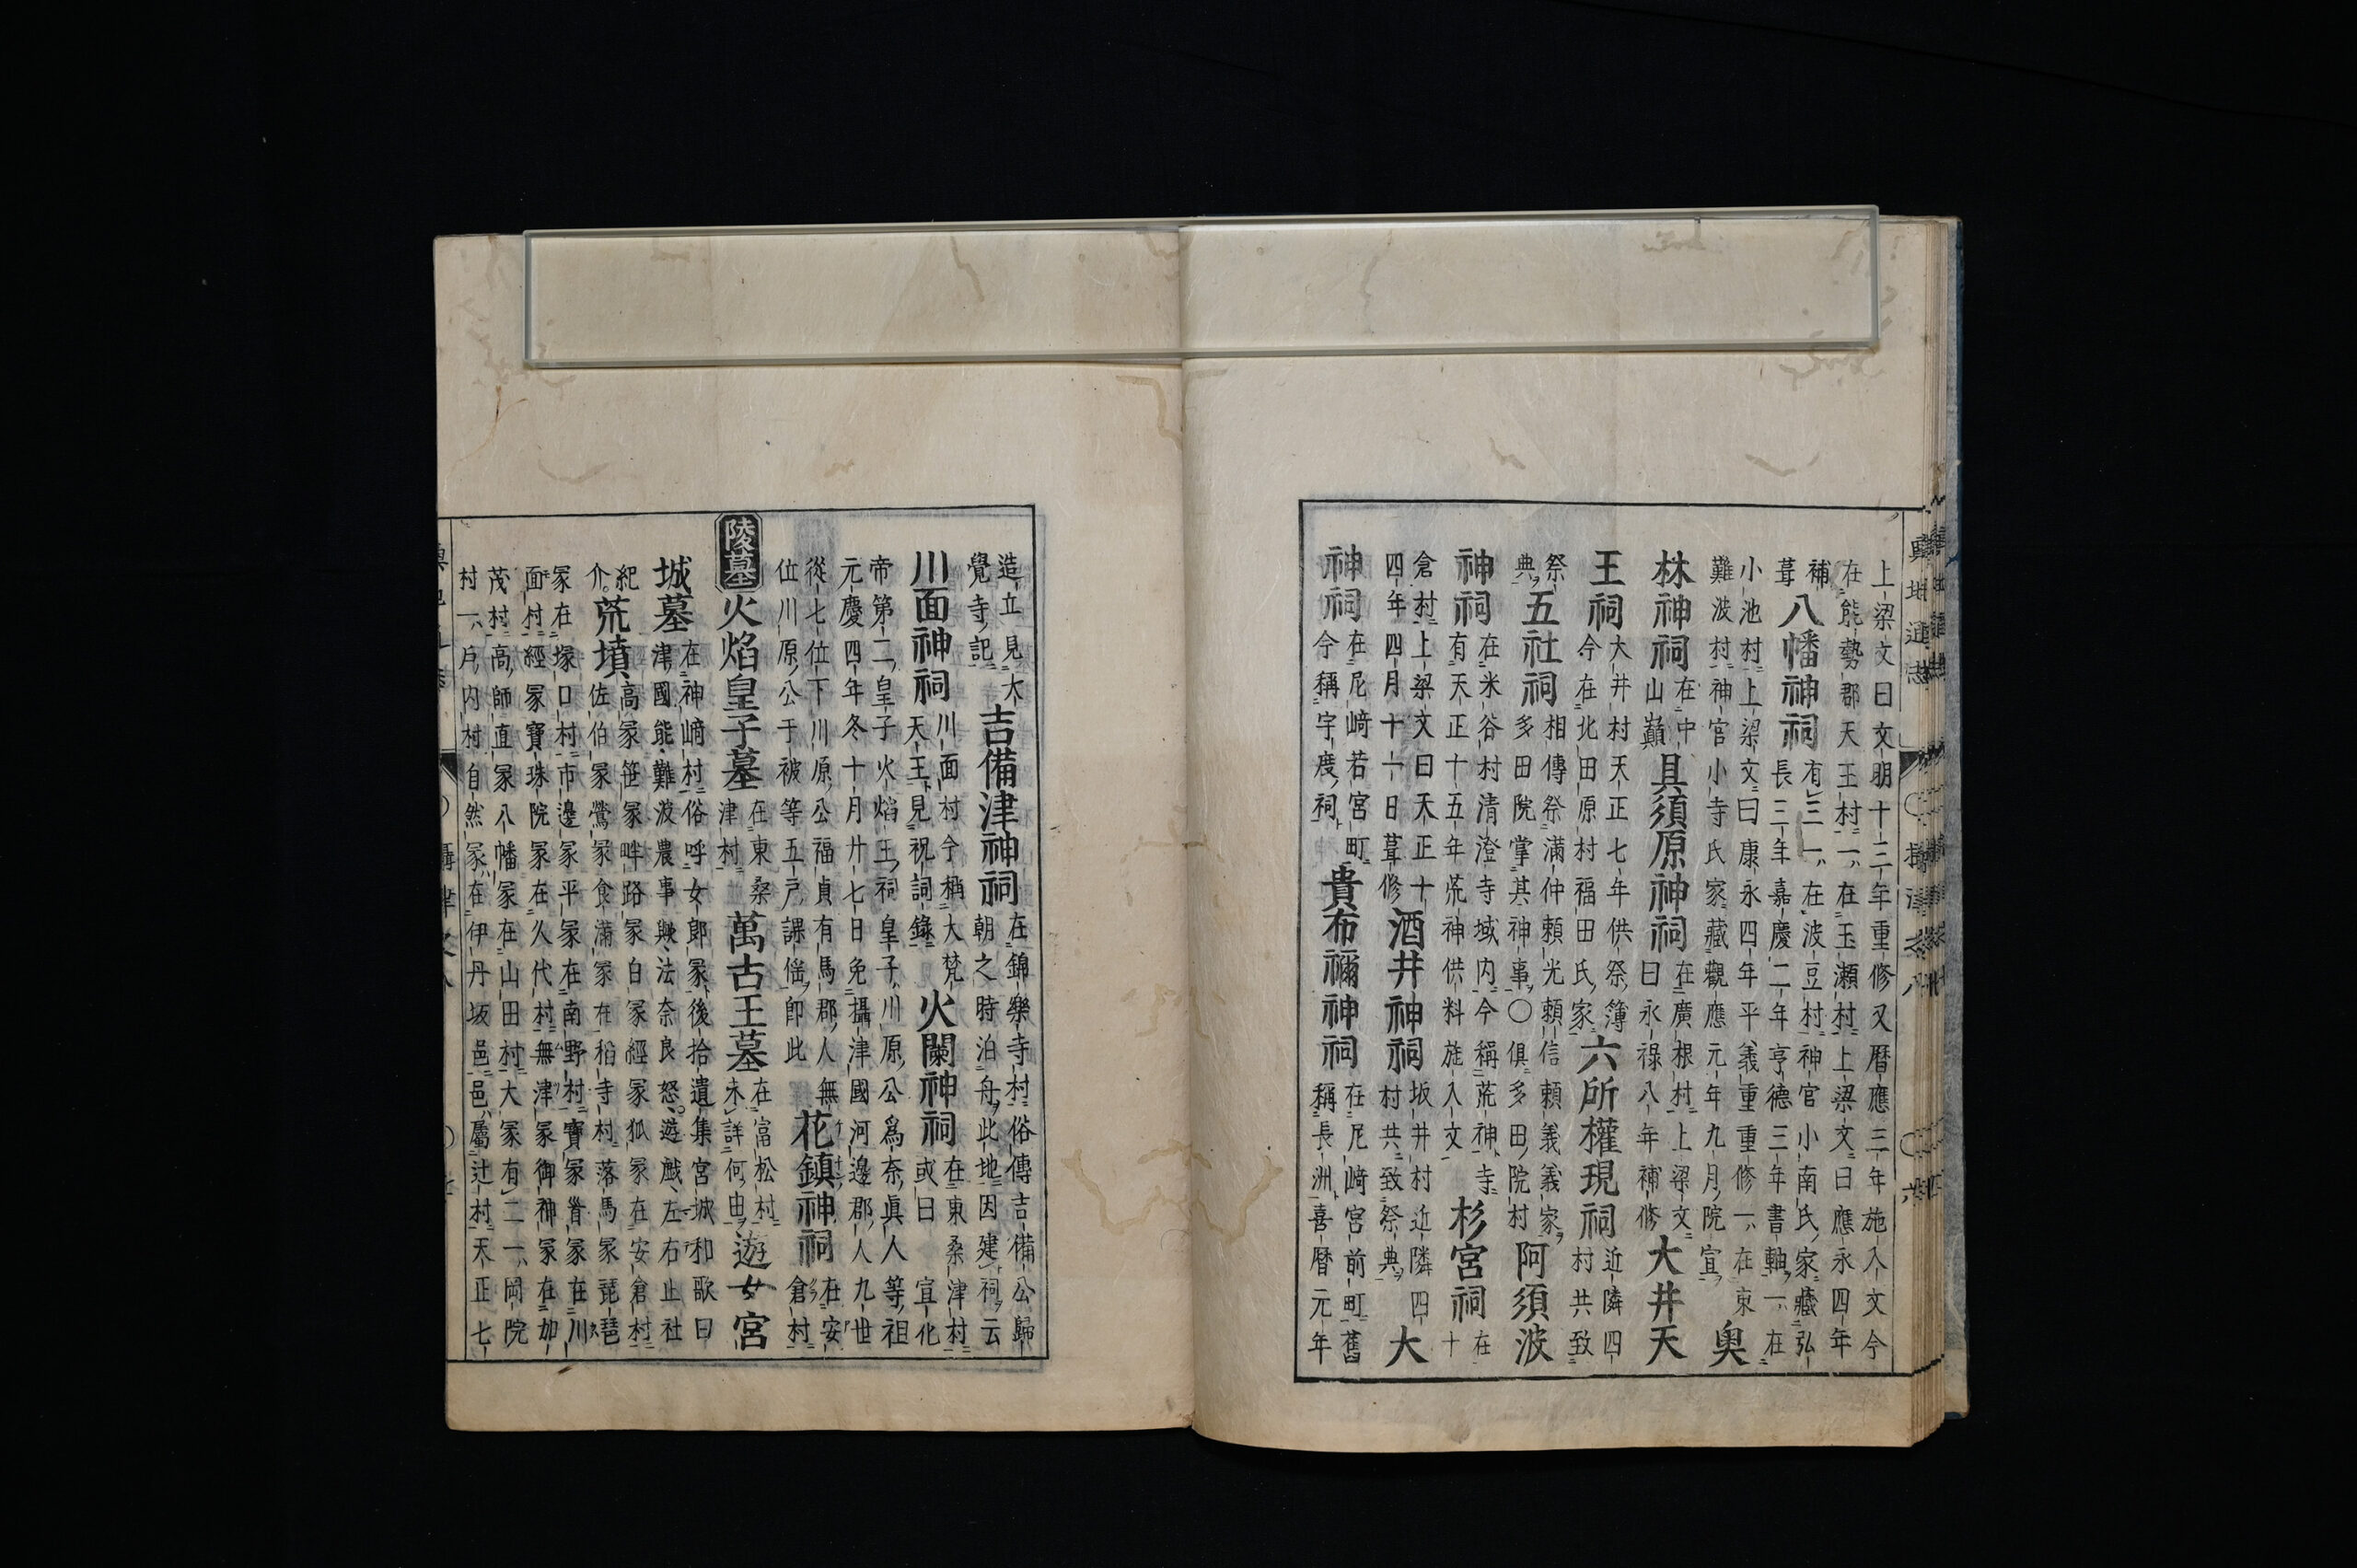 輿地通志
攝津之八
六
上梁文曰文明十二年重修又暦應三年施入文今
在能勢郡天王村一在玉瀬村上梁文曰應永四年
補葺八幡神祠有三一在波豆村神官小南氏家藏弘長三年嘉慶二年亨德三年書軸一在
小池村上梁文曰康永四年平義重重修一在東
難波村神官小寺氏家藏觀應元年九月院宣奥
林神祠在中山巓具須原神祠在廣根村上梁文曰永禄八年補修大井天
王祠大井村天正七年供祭簿今在北田原村福田氏家六所權現祠近隣四村共致
祭典五社祠相傳祭滿仲頼光頼信頼義義家多田院掌其神事〇俱多田院村阿須波
神祠在米谷村清澄寺域内今稱荒神寺有天正十五年荒神供料旌入文杉宮祠在十
倉村上梁文曰天正十四年四月十一日葺修酒井神祠坂井村近隣四村共致祭典大
神祠在尼﨑若宮町今稱宇度祠貴布禰神祠在尼﨑宮前町舊稱長洲喜暦元年
造立見大覺寺記吉備津神祠在錦樂寺村俗傳吉備公歸朝之時泊舟此地因建祠云
川面神祠川面村今稱大梵天王見祝詞錄火闌神祠在東桑津村或曰宣化
帝第二皇子火焰王祠皇子川原公爲奈眞人等祖
元慶四年冬十月廿七日免攝津國河邊郡人九世
從七位下川原公福貞有馬郡人無位川原公于被等五戸課徭即此花鎮神祠在安倉村
陵墓火焰皇子墓在東桑津村萬古王墓在富松村未詳何由遊女宮
城墓在神﨑村俗呼女郎冢後拾遺集宮城和歌曰津國能難波農事歟法奈良怒遊戲左右止社
紀介荒墳高冢笹冢畔路冢白冢經冢狐冢在安倉村佐伯冢鶯冢食滿冢在稻寺村落馬冢琵琶
冢在塚口村市邊冢平冢在南野村寶冢眷冢在川
面村經冢寶珠院冢在久代村無津冢御神冢在加
茂村高師直冢八幡冢在山田村大冢有二一岡院
村一戸内村自然冢在伊丹坂邑邑屬辻村天正七